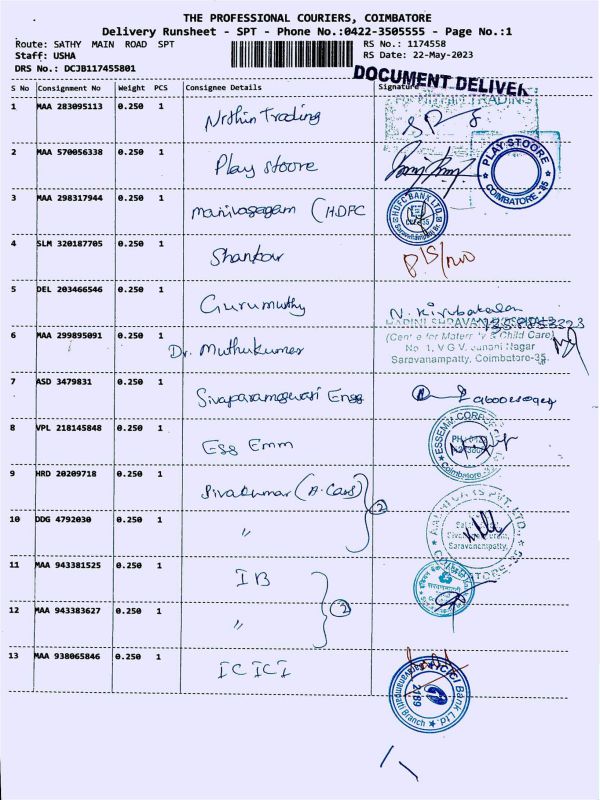 THE PROFESSIONAL COURIERS, COIMBATORE
Delivery Runsheet - SPT - Phone No.:0422-3505555 - Page No.:1
Route: SATHY MAIN ROAD SPT
RS No.: 1174558
Staff: USHA
RS Date: 22-May-2023
DRS No.: DCJB117455801
DOCUMENT DELIVER
S No Consignment No Weight PCS Consignee Details Signature
1 MAA 283095113 0.250 1 Nithin Trading
2 MAA 570056338 0.250 1 Play Stoore
PLAY STOORE
COIMBATORE - 35
3 MAA 298317944 0.250 1 Manivasagam (HDFC
HDFC BANK LTD.
4 SLM 320187705 0.250 1 Shankar
5 DEL 203466546 0.250 1 Gurumuthy
N. Kirubakalan
6 MAA 299895091 0.250 1 Dr. Muthukumar
(Centre for Maternity & Child Care)
No. 1, V G V. Janani Nagar
Saravanampatty, Coimbatore-35.
7 ASD 3479831 0.250 1 Sivaparameswari Engg
8 VPL 218145848 0.250 1 Ess Emm
ESSEMM CORPOR
Coimbatore
9 HRD 20209718 0.250 1 Sivakumar (A. Cars)
2
10 DDG 4792030 0.250 1 "
Saravanampatty,
11 MAA 943381525 0.250 1 IB
2
12 MAA 943383627 0.250 1 "
13 MAA 938065846 0.250 1 ICICI
ICICI Bank Ltd
2189
Branch